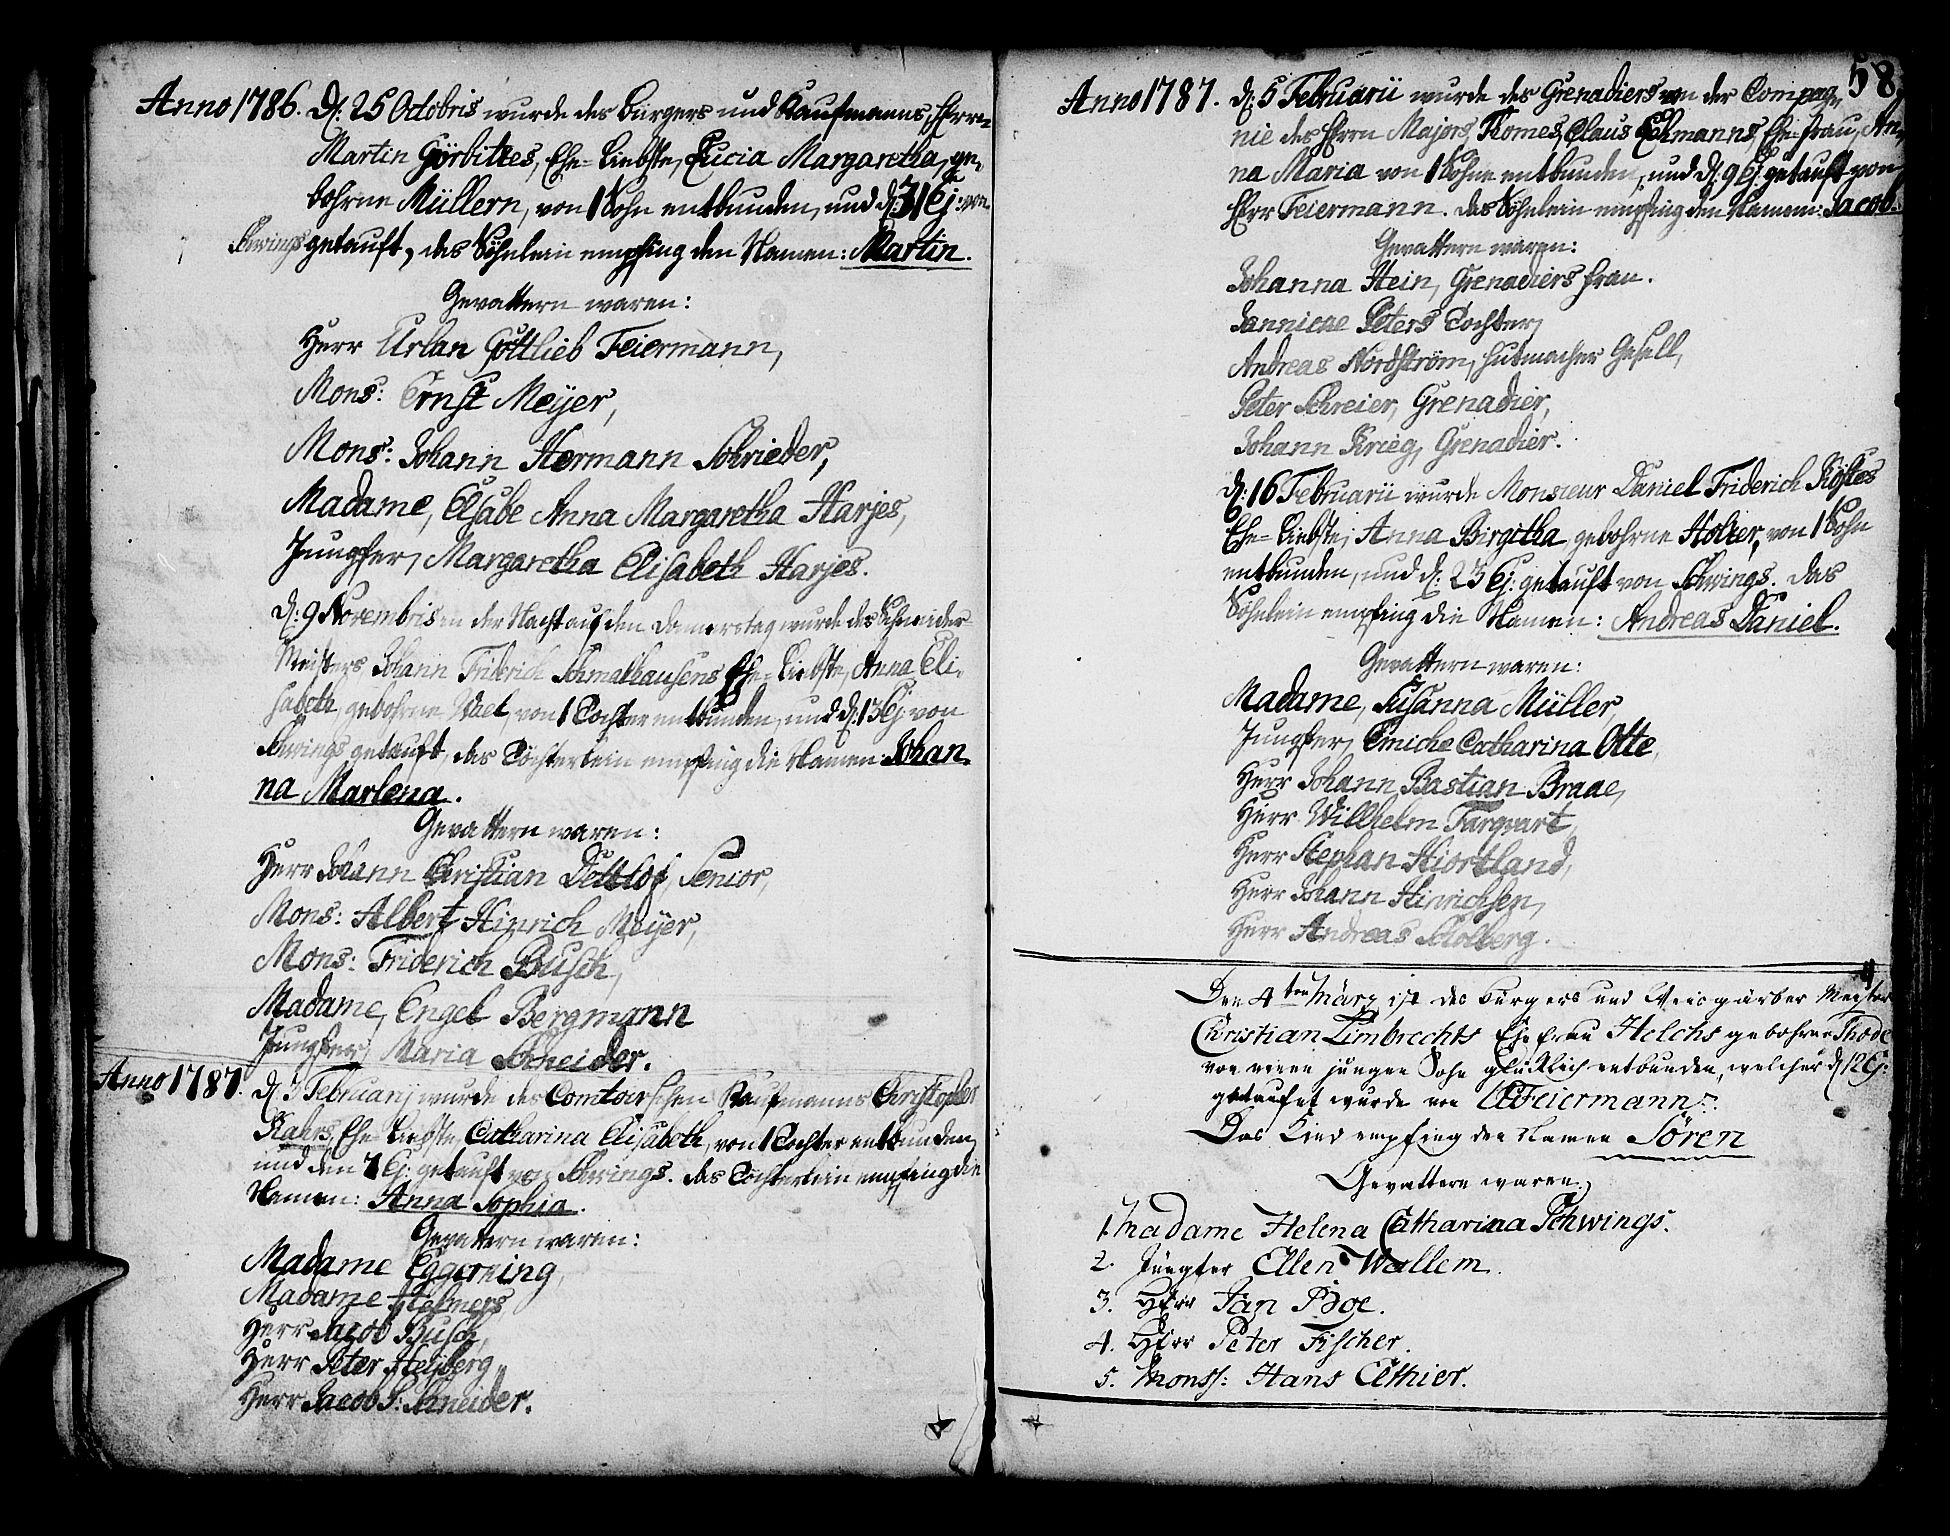 Anno 1786. D: 25 Octobris wurde des Bürgers und Kaufmanns, Herrn
Martin Görbitzes, Ehe=Liebste, Lucia Margaretha, ge-
bohrne Müllern, von 1 Sohn entbunden, und d: 31 Ej: von
Schwings getauft, das Söhnlein empfing den Namen: Martin.
Gevattern waren:
Herr Urban Gottlieb Feiermann,
Mons: Ernst Meyer,
Mons: Johann Hermann Schrieder,
Madame, Elsabe Anna Margaretha Harjes,
Jungfer, Margaretha Elisabeth Harjes.
D: 9 Novembris in der Nacht auf den Donnerstag wurde des Schneider
Meisters Johann Friderich Schmalhausens Ehe=Liebste, Anna Eli-
sabeth, gebohrne Wael, von 1 Tochter entbunden, und d: 13 Ej von
Schwings getauft, das Töchterlein empfing die Namen: Johan-
na Marlena.
Gevattern waren:
Herr Johann Christian Dettlof, Senior,
Mons: Albert Hinrich Meyer,
Mons: Friderich Busch,
Madame, Engel Bergmann
Jungfer, Maria Schneider.
Anno 1787. D: 3 Februarij wurde des Comtoirschen Kaufmanns Christopher
Kahrs, Ehe=Liebste, Catharina Elisabeth, von 1 Tochter entbunden,
und den 7 Ej: getauft von Schwings. das Töchterlein empfing die
Namen: Anna Sophia.
Gevattern waren:
Madame Eggerking,
Madame Helmers
Herr Jacob Busch,
Herr Peter Heyberg,
Herr Jacob S: Schneider.
58.
Anno 1787. D: 5 Februarii wurde des Grenadiers von der Compag-
nie des Herrn Majors, Komes, Claus Eckmanns, Ehe=frau, An-
na Maria von 1 Sohne entbunden, und d: 9 Ej. getauft von
Herr Feiermann. das Söhnlein empfing den Namen: Jacob.
Gevattern waren:
Johanna Hein, Grenadiers frau.
Jannicae Peters Tochter,
Andreas Nordström, Hutmacher Gesell,
Peter Schreier, Grenadier,
Johann Krieg, Grenadier.
D: 16 Februarii wurde Monsieur Daniel Friderich Köstes
Ehe=Liebste, Anna Birgitha, gebohrne Holter, von 1 Sohn
entbunden, und d: 23 Ej: getauft von Schwings. das
Söhnlein empfing die Namen: Andreas Daniel.
Gevattern waren:
Madame, Susanna Müller
Jungfer, Emiche Catharina Otte,
Herr Johann Bastian Braae,
Herr Willhelm Farqvart,
Herr Stephan Hiortland,
Herr Johann Hinrichsen,
Herr Andreas Scholberg.
Den 4ten März ist des Bürgers und Weisgärber Meister
Christian Limbrechts Ehefrau Helchs gebohrne Thode
von einen jungen Sohn glücklich entbunden, welcher d 12 Ej:
getaufet wurde von UGFeiermann.
Das Kind empfing den Namen Sören
Gevattern waren.
1. Madame Helena Catharina Schwings.
2. Jungfer Ellen Wallem.
3. Herr Jan Boe.
4. Herr Peter Fischer.
5. Mons: Hans Ethier.